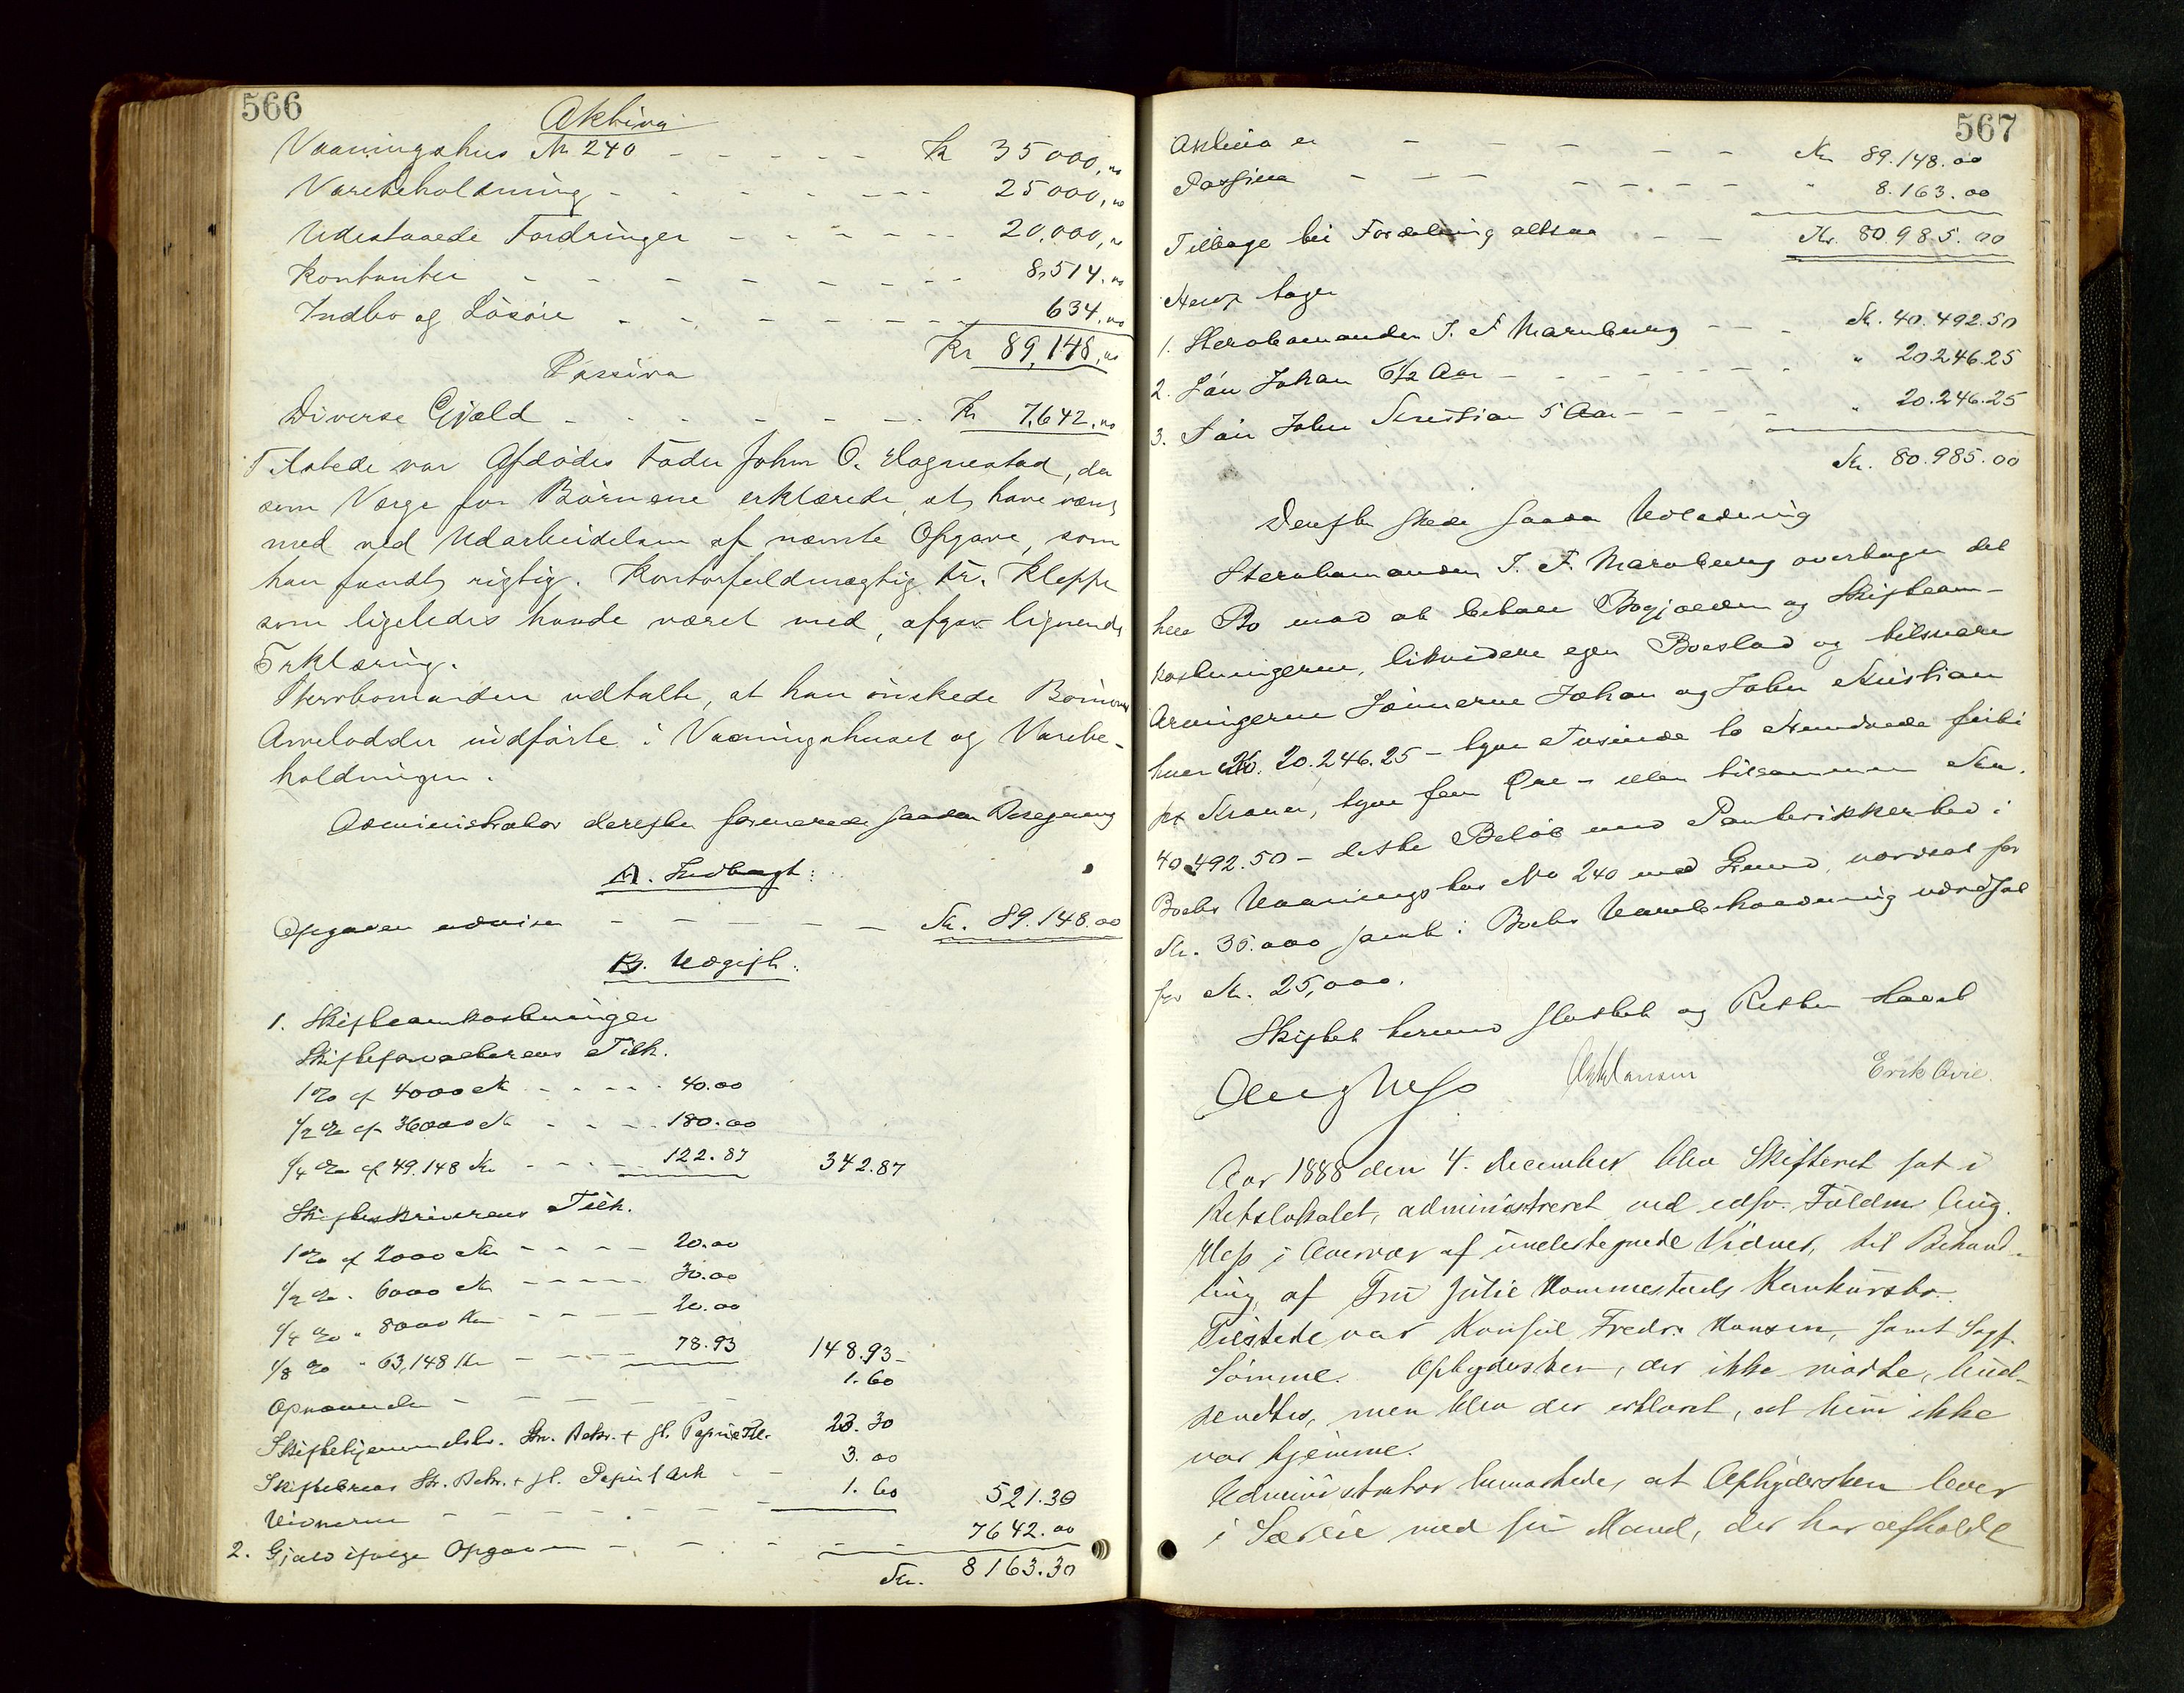 566
Aktiva
Vaaningshus No 240 - - - - - Kr 35000,00
Varebeholdning - - - - - - 25000,00
Udestaaende Fordringer - - - - - 20,000,00
Kontanter - - - - - - - 8,514,00
Indbo og Løsøre - - - - - - - 634,00
Kr 89,148,00
Passiva
Diverse Gjæld - - - - - - Kr 7,642,00
Tilstede var Afdødes Fader John O. Hognestad, der
som Værge for Børnene erklærede, at have været
med ved Udarbeidelsen af nævnte Opgave, som
han fandt rigtig. Kontorfuldmægtig Fr. Kleppe
som ligeledes havde været med, afgav lignende
Erklæring.
Sterbomanden udtalte, at han ønskede Børnenes
Arvelodder indførte i Vaaningshuset og Varebe-
holdningen.
Administrator derefter formerede saadan Beregning
A. Indtægt:
Opgaven udviser - - - - - Kr. 89.148.00
B. Udgift:
1. Skifteomkostninger
Skifteforvalterens Tilk.
1 % af 4000 Kr - - - - 40.00
1/2 % af 36000 Kr - - - 180.00
1/4 % af 49.148 Kr - - - 122.87 342.87
Skifteskriverens Tilk.
1 % af 2000 Kr - - - - 20.00
1/2 % " 6000 Kr - - - - 30.00
1/4 % " 8000 Kr - - - 20.00
1/8 % " 63,148 Kr - - - 78.93 148.93
Opnævnelse - - - - - - 1.60
Skiftebrevs St. Rekr. + st. Papir 1 Ark - - 3.00
Vidnerne - - - - - - 1.60 521.30
2. Gjæld ifølge Opgaven - - - - - 7642.00
Kr. 8163.30
567
Aktiva er - - - - - - Kr 89.148.00
Passiva - - - - - - - " 8.163.00
Tilbage til Fordeling altsaa - - Kr. 80.985.00
Heraf tager
1. Sterbomanden T. F. Marnburg - - - Kr. 40.492.50
2. Søn Johan 6 1/2 Aar - - - - - - " 20.246.25
3. Søn John Kristian 5 Aar - - - - " 20.246.25
Kr. 80.985.00
Derefter skede saadan Udlædning
Sterbomanden T. F. Marnburg overtager det
hele Bo mod at betale Bogjælden og Skifteom-
kostningerne, likvidere egen Boeslod og tilsvare
Arvingerne Sønnerne Johan og John Kristian
hver Kr. 20.246.25 - tyve Tusinde to Hundrede firti
sex Kroner, tyve fem Øre - eller tilsammen Kr.
40.492.50 - dette Beløb med Pantesikkerhed i
Boets Vaaningshus No 240 med Grund, værdsat for
Kr. 35.000 samt i Boets Varebeholdning værdsat
for Kr. 25,000.
Skiftet hermed sluttet og Retten hævet
Aug Hess Erik Qvie
Aar 1888 den 4. December blev Skifteret sat i
Retslokalet, administreret ved edsv. Fuldm Aug.
Hess i Overvær af undertegnede Vidner, til Behand-
ling af Fru Julie Hommestads Konkursbo.
Tilstede var Konsul Fredr. Hansen, samt Sagf.
Sømme. Opbydersken, der ikke mødte, bud-
sendtes, men blev der erklæret, at hun ikke
var hjemme.
Administrator bemærkede, at Opbydersken lever
i Særeie med sin Mand, der har afholdt